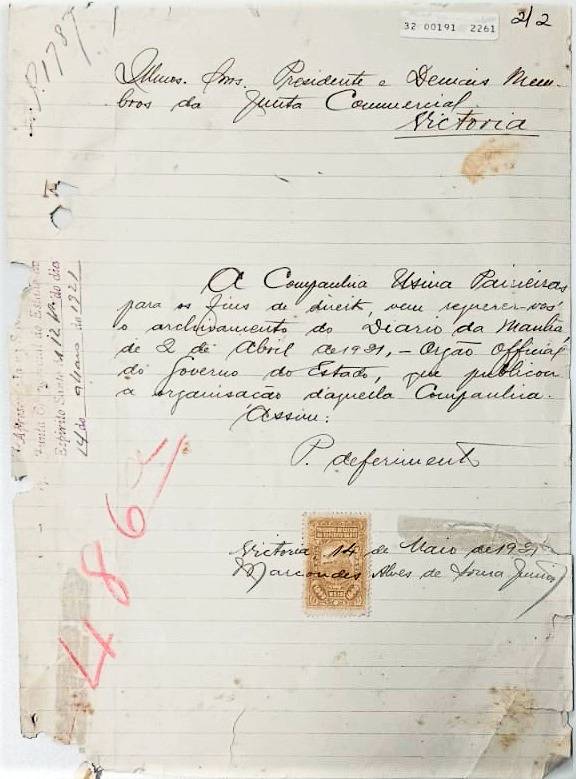 32 00191 2261
2/2
D. 1787
Illmos. Snrs. Presidente e Demais Mem-
bros da Junta Commercial.
Victoria
A Companhia Usina Paineiras
para os fins de direito, vem requerer-vos
o archivamento do Diario da Manhã,
de 2 de Abril de 1921, - Orgão Official
do Governo do Estado, que publicou
a organisação d'aquella Companhia.
Assim:
P. deferimento
Victoria, 14 de Maio de 1921
Marcondes Alves de Souza Junior
Junta Commercial do Estado do
Espirito Santo á 12 hs. do dia
14 de Maio de 1921
REIS
486